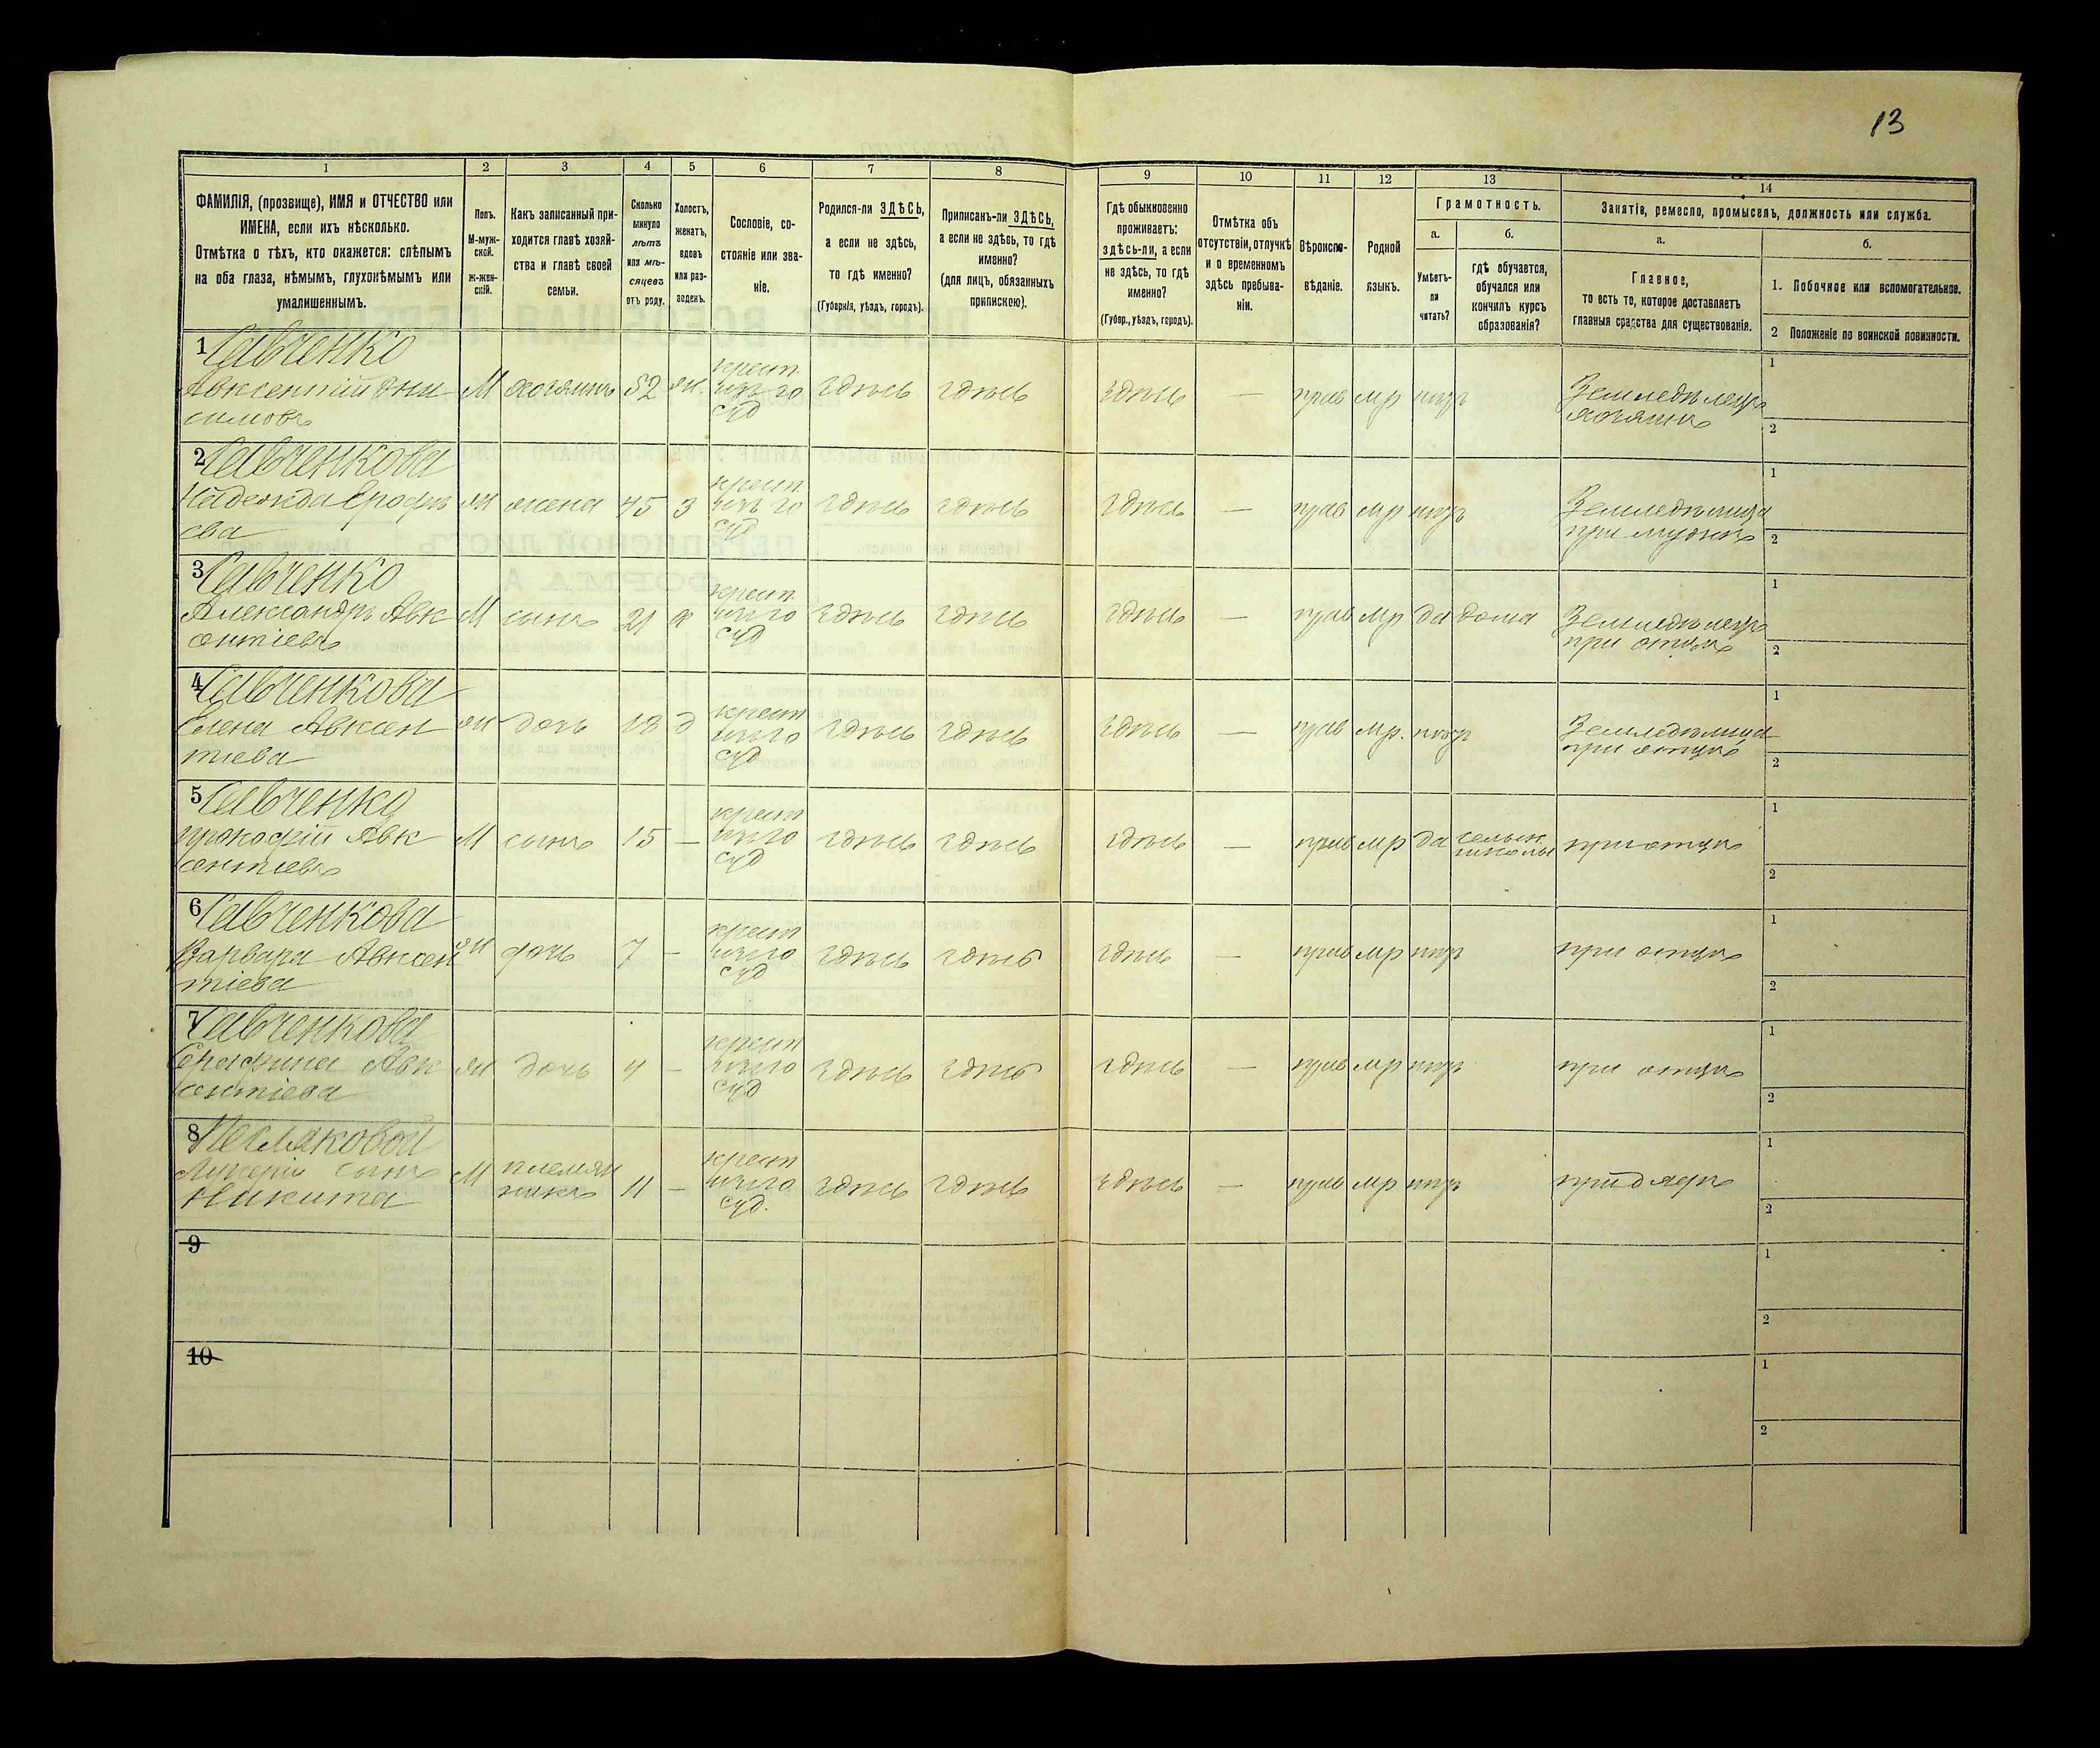 13
1
2
3
4
5
6
7
8
9
10
11
12
13
14
ФАМИЛІЯ, (прозвище), ИМЯ и ОТЧЕСТВО или
ИМЕНА, если ихъ нѣсколько.
Отмѣтка о тѣхъ, кто окажется: слѣпымъ
на оба глаза, нѣмымъ, глухонѣмымъ или
умалишеннымъ.
Полъ.
М-муж-
ской.
ж-жен-
скій.
Какъ записанный при-
ходится главѣ хозяй-
ства и главѣ своей
семьи.
Сколько
минуло
лѣтъ
или мѣ-
сяцевъ
отъ роду.
Холостъ,
женатъ,
вдовъ
или раз-
веденъ.
Сословіе, со-
стояніе или зва-
ніе.
Родился-ли ЗДѢСЬ,
а если не здѣсь,
то гдѣ именно?
(Губернія, уѣздъ, городъ).
Приписанъ-ли ЗДѢСЬ,
а если не здѣсь, то гдѣ
именно?
(для лицъ, обязанныхъ
припискою).
Гдѣ обыкновенно
проживаетъ:
здѣсь-ли, а если
не здѣсь, то гдѣ
именно?
(Губер., уѣздъ, городъ).
Отмѣтка объ
отсутствіи, отлучкѣ
и о временномъ
здѣсь пребыва-
ніи.
Вѣроиспо-
вѣданіе.
Родной
языкъ.
Грамотность.
а.
Умѣетъ-
ли
читать?
б.
гдѣ обучается,
обучался или
кончилъ курсъ
образованія?
Занятіе, ремесло, промыселъ, должность или служба.
а.
Главное,
то есть то, которое доставляетъ
главныя средства для существованія.
б.
1. Побочное или вспомогательное.
2 Положеніе по воинской повинности.
1 Савченко
Авксентій Они
симовъ
М хозяинъ 52 ж. крест. изъ го суд здѣсь здѣсь здѣсь — прав мр нѣтъ Земледѣлецъ хозяинъ
1
2
2 Савченкова
Надежда Ерофѣ
ева
ж жена 45 з крест. изъ го суд здѣсь здѣсь здѣсь — прав мр нѣтъ Земледѣлица при мужѣ
1
2
3 Савченко
Александръ Авк
сентіевъ
М сынъ 21 х крест. изъ го суд здѣсь здѣсь здѣсь — прав мр да дома Земледѣлецъ при отцѣ
1
2
4 Савченкова
Елена Авксен
тіева
ж дочь 18 д крест изъ го суд здѣсь здѣсь здѣсь — прав мр. нѣтъ Земледѣлица при отцѣ
1
2
5 Савченко
Прокофій Авк
сентіевъ
М сынъ 15 — крест изъ го суд здѣсь здѣсь здѣсь — прав мр да сельск школы при отцѣ
1
2
6 Савченкова
Варвара Авксен
тіева
ж дочь 7 — крест изъ го суд здѣсь здѣсь здѣсь — прав мр нѣтъ при отцѣ
1
2
7 Савченкова
Серафима Авк
сентіева
ж дочь 4 — крест изъ го суд здѣсь здѣсь здѣсь — прав мр нѣтъ при отцѣ
1
2
8
сынъ
Никита
М племян никъ 11 — крест изъ го суд. здѣсь здѣсь здѣсь — прав мр нѣтъ при дядѣ
1
2
9
1
2
10
1
2